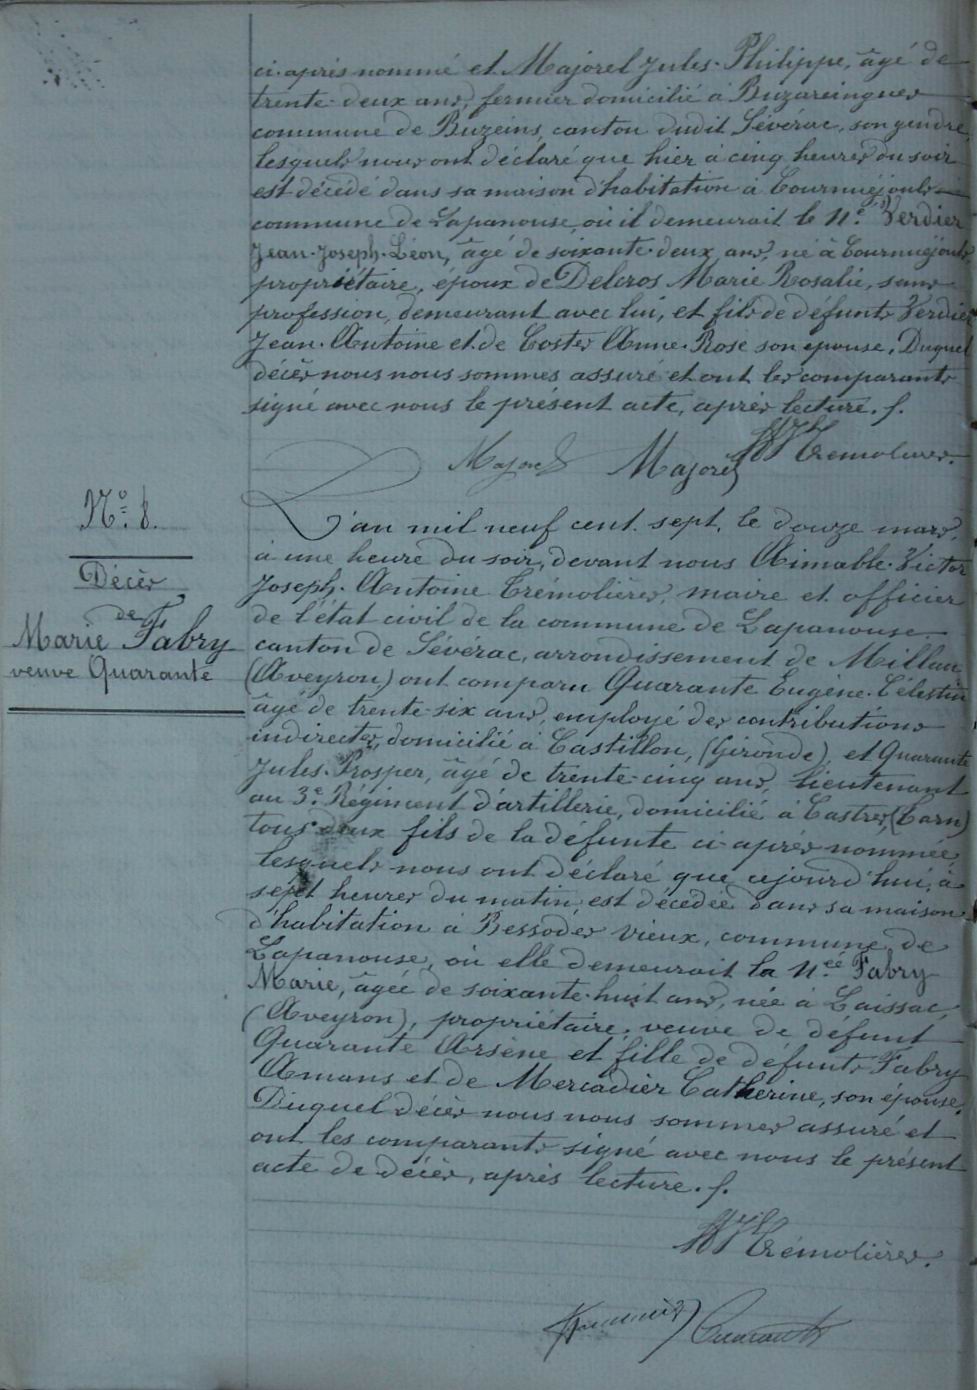 ci-après nommé et Majorel Jules-Philippe, âgé de
trente-deux ans, fermier domicilié à Buzareingues
commune de Buzeins, canton dudit Sévérac, son gendre
lesquels nous ont déclaré que hier à cinq heures du soir
est décédé dans sa maison d'habitation à Cournuéjouls
commune de Lapanouse, où il demeurait le n.é Verdier
Jean-Joseph-Léon, âgé de soixante-deux ans, né à Cournuéjouls
propriétaire, époux de Delcros Marie Rosalie, sans
profession, demeurant avec lui, et fils de défunts Verdier
Jean-Antoine et de Costes Anne-Rose son épouse, Duquel
décès nous nous sommes assuré et ont les comparants
signé avec nous le présent acte, après lecture. f.
Majorel Majorel Trémolières.
N.º 8.
Décès
de
Marie Fabry
veuve Quarante
L'an mil neuf cent sept, le douze mars,
à une heure du soir, devant nous Aimable-Victor
Joseph-Antoine Trémolières, maire et officier
de l'état civil de la commune de Lapanouse
canton de Sévérac, arrondissement de Millau
(Aveyron) ont comparu Quarante Eugène-Célestin
âgé de trente-six ans, employé des contributions
indirectes, domicilié à Castillon, (Gironde), et Quarante
Jules-Prosper, âgé de trente-cinq ans, lieutenant
au 3.e Régiment d'artillerie, domicilié à Castres, (Tarn)
tous deux fils de la défunte ci-après nommée,
lesquels nous ont déclaré que cejourd'hui, à
sept heures du matin, est décédée dans sa maison
d'habitation à Bessodes vieux, commune de
Lapanouse, où elle demeurait la n.ée Fabry
Marie, âgée de soixante-huit ans, née à Laissac
(Aveyron), propriétaire, veuve de défunt
Quarante Arsène et fille de défunts Fabry
Amans et de Mercadier Catherine, son épouse.
Duquel décès nous nous sommes assuré et
ont les comparants signé avec nous le présent
acte de décès, après lecture. f.
Trémolières.
Quarante